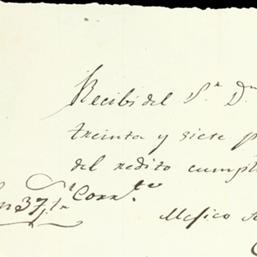 Recibi del Sr. Dn
treinta y siete p
del redito cumpl
Corrte
37
Mexico